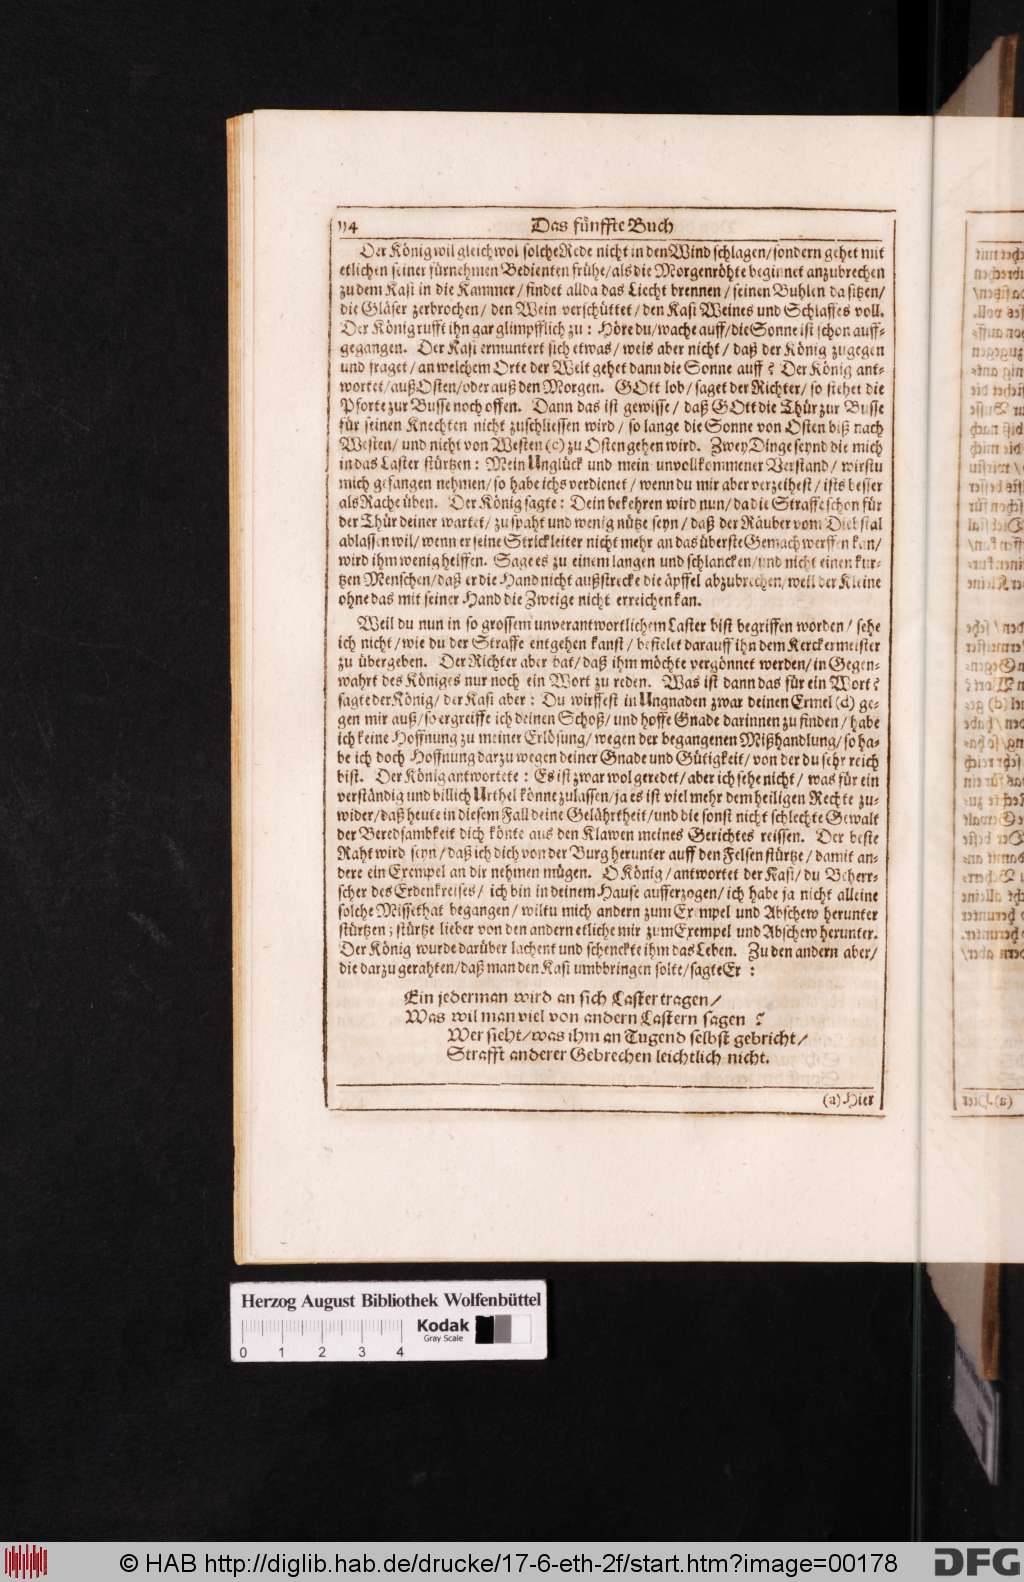 114 Das fünffte Buch
Der König wil gleichwol solche Rede nicht in den Wind schlagen/ sondern gehet mit
etlichen seiner fürnehmen Bedienten frühe/ als die Morgenröhte beginnet anzubrechen
zu dem Kasi in die Kammer/ findet allda das Liecht brennen/ seinen Buhlen da sitzen/
die Gläser zerbrochen/ den Wein verschüttet/ den Kasi Weines und Schlaffes voll.
Der König rufft ihn gar glimpfflich zu: Höre du/ wache auff/ die Sonne ist schon auff-
gegangen. Der Kasi ermuntert sich etwas/ weis aber nicht/ daß der König zugegen
und fraget/ an welchem Orte der Welt gehet dann die Sonne auff? Der König ant-
wortet/ auß Osten/ oder auß den Morgen. GOtt lob/ saget der Richter/ so stehet die
Pforte zur Busse noch offen. Dann das ist gewisse/ daß GOtt die Thür zur Busse
für seinen Knechten nicht zuschliessen wird/ so lange die Sonne von Osten biß nach
Westen/ und nicht von Westen (c) zu Osten gehen wird. Zwey Dinge seynd die mich
in das Laster stürtzen: Mein Unglück und mein unvollkommener Verstand/ wirstu
mich gefangen nehmen/ so habe ichs verdienet/ wenn du mir aber verzeihest/ ists besser
als Rache üben. Der König sagte: Dein bekehren wird nun/ da die Straffe schon für
der Thür deiner wartet/ zu spaht und wenig nütze seyn/ daß der Räuber vom Diebstal
ablassen wil/ wenn er seine Strickleiter nicht mehr an das überste Gemach werffen kan/
wird ihm wenig helffen. Sage es zu einem langen und schlancken/ und nicht einen kur-
tzen Menschen/ daß er die Hand nicht außstrecke die äpffel abzubrechen/ weil der Kleine
ohne das mit seiner Hand die Zweige nicht erreichen kan.
Weil du nun in so grossem unverantwortlichem Laster bist begriffen worden/ sehe
ich nicht/ wie du der Straffe entgehen kanst/ befielet darauff ihn dem Kerckermeister
zu übergeben. Der Richter aber bat/ daß ihm möchte vergönnet werden/ in Gegen-
wahrt des Königes nur noch ein Wort zu reden. Was ist dann das für ein Wort?
sagte der König/ der Kasi aber: Du wirffest in Ungnaden zwar deinen Ermel (d) ge-
gen mir auß/ so ergreiffe ich deinen Schoß/ und hoffe Gnade darinnen zu finden/ habe
ich keine Hoffnung zu meiner Erlösung/ wegen der begangenen Mißhandlung/ so ha-
be ich doch Hoffnung darzu wegen deiner Gnade und Gütigkeit/ von der du sehr reich
bist. Der König antwortete: Es ist zwar wol geredet/ aber ich sehe nicht/ was für ein
verständig und billich Urthel könne zulassen/ ja es ist viel mehr dem heiligen Rechte zu-
wider/ daß heute in diesem Fall deine Gelährtheit/ und die sonst nicht schlechte Gewalt
der Beredsambkeit dich könte aus den Klawen meines Gerichtes reissen. Der beste
Raht wird seyn/ daß ich dich von der Burg herunter auff den Felsen stürtze/ damit an-
dere ein Exempel an dir nehmen mügen. O König/ antwortet der Kasi/ du Beherr-
scher des Erdenkreises/ ich bin in deinem Hause aufferzogen/ ich habe ja nicht alleine
solche Missethat begangen/ wiltu mich andern zum Exempel und Abschew herunter
stürtzen; stürtze lieber von den andern etliche mir zum Exempel und Abschew herunter.
Der König wurde darüber lachent und schenckte ihm das Leben. Zu den andern aber/
die darzu gerahten/ daß man den Kasi umbbringen solte/ sagte Er:
Ein jederman wird an sich Laster tragen/
Was wil man viel von andern Lastern sagen?
Wer sieht/ was ihm an Tugend selbst gebricht/
Strafft anderer Gebrechen leichtlich nicht.
(a) Hier
Herzog August Bibliothek Wolfenbüttel
Kodak
Gray Scale
0 1 2 3 4
© HAB http://diglib.hab.de/drucke/17-6-eth-2f/start.htm?image=00178
DFG